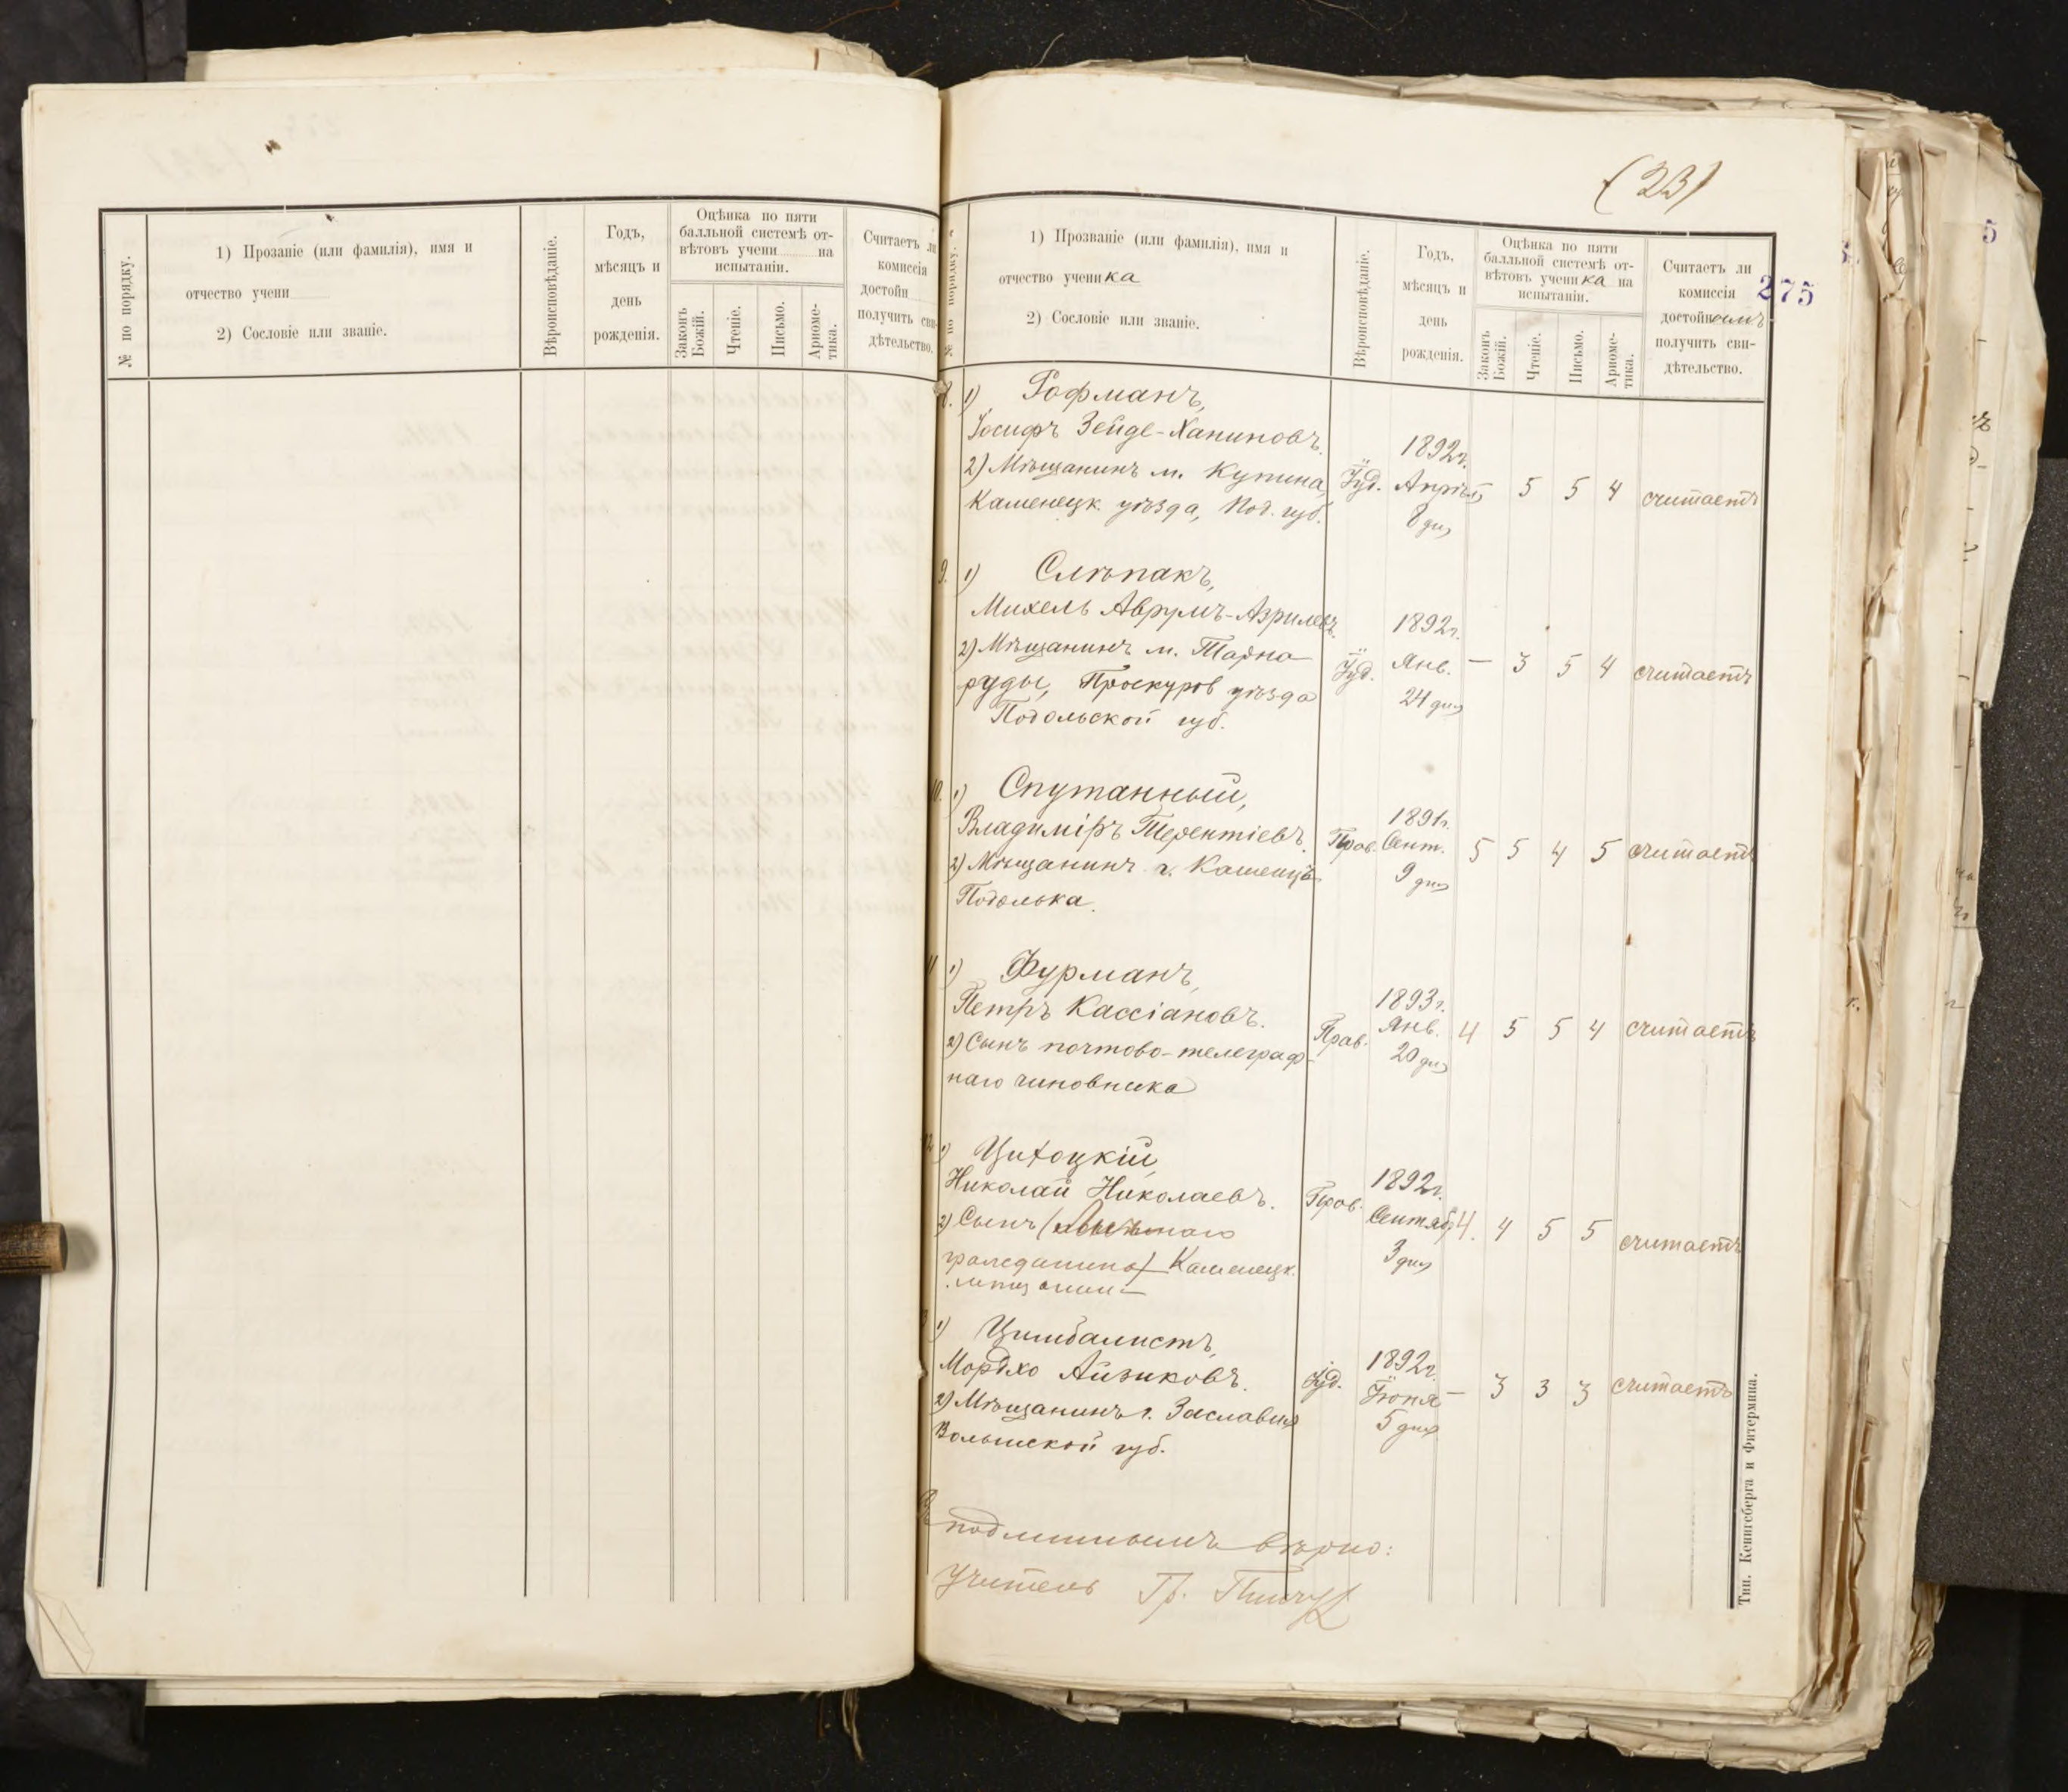 № по порядку.
1) Прозаніе (или фамилія), имя и
отчество учени
2) Сословіе или званіе.
Вѣроисповѣданіе.
Годъ,
мѣсяцъ и
день
рожденія.
Оцѣнка по пяти
балльной системѣ от-
вѣтовъ учени на
испытаніи.
Законъ
Божій.
Чтеніе.
Письмо.
Ариѳме-
тика.
Считаетъ ли
комиссія
достойн
получить сви-
дѣтельство.
(23)
275
№ по порядку.
1) Прозваніе (или фамилія), имя и
отчество ученика
2) Сословіе или званіе.
Вѣроисповѣданіе.
Годъ,
мѣсяцъ и
день
рожденія.
Оцѣнка по пяти
балльной системѣ от-
вѣтовъ ученика на
испытаніи.
Законъ
Божій.
Чтеніе.
Письмо.
Ариѳме-
тика.
Считаетъ ли
комиссія
достойнымъ
получить сви-
дѣтельство.
8. 1) Гофманъ,
Іосифъ Зейде-Ханиновъ.
2) Мѣщанинъ м. Купина,
Каменецк. уѣзда, Под. губ.
Іуд.
1892г.
Апрѣля
8 дня
— 5 5 4 считаетъ
9. 1) Слѣпакъ,
Михель Аврумъ-Азрилевъ.
2) Мѣщанинъ м. Тарно-
руды, Проскуров уѣзда
Подольской губ.
Іуд.
1892г.
Янв.
24 дня
— 3 5 4 считаетъ
10. 1) Спутанный,
Владиміръ Терентіевъ.
2) Мѣщанинъ г. Каменца
Подольска.
Прав.
1891г.
Сент.
9 дня
5 5 4 5 считаетъ
11 1) Фурманъ,
Петръ Кассіановъ.
2) Сынъ почтово-телеграф-
наго чиновника
Прав.
1893г.
Янв.
20 дня
4 5 5 4 считаетъ
12 1) Цихоцкій,
Николай Николаевъ.
2) Сынъ
гражданина) Каменецк.
мѣщанин
Прав.
1892г.
Сентяб.
3 дня
4. 4 5 5 считаетъ
1) Цимбалистъ,
Мордко Айзиковъ.
2) Мѣщанинъ г. Заславля
Волынской губ.
Іуд.
1892г.
Іюня
5 дня
— 3 3 3 считаетъ
подлиннымъ вѣрно:
Учитель Гр.
Тип. Кенигсберга и Фитермана.
5